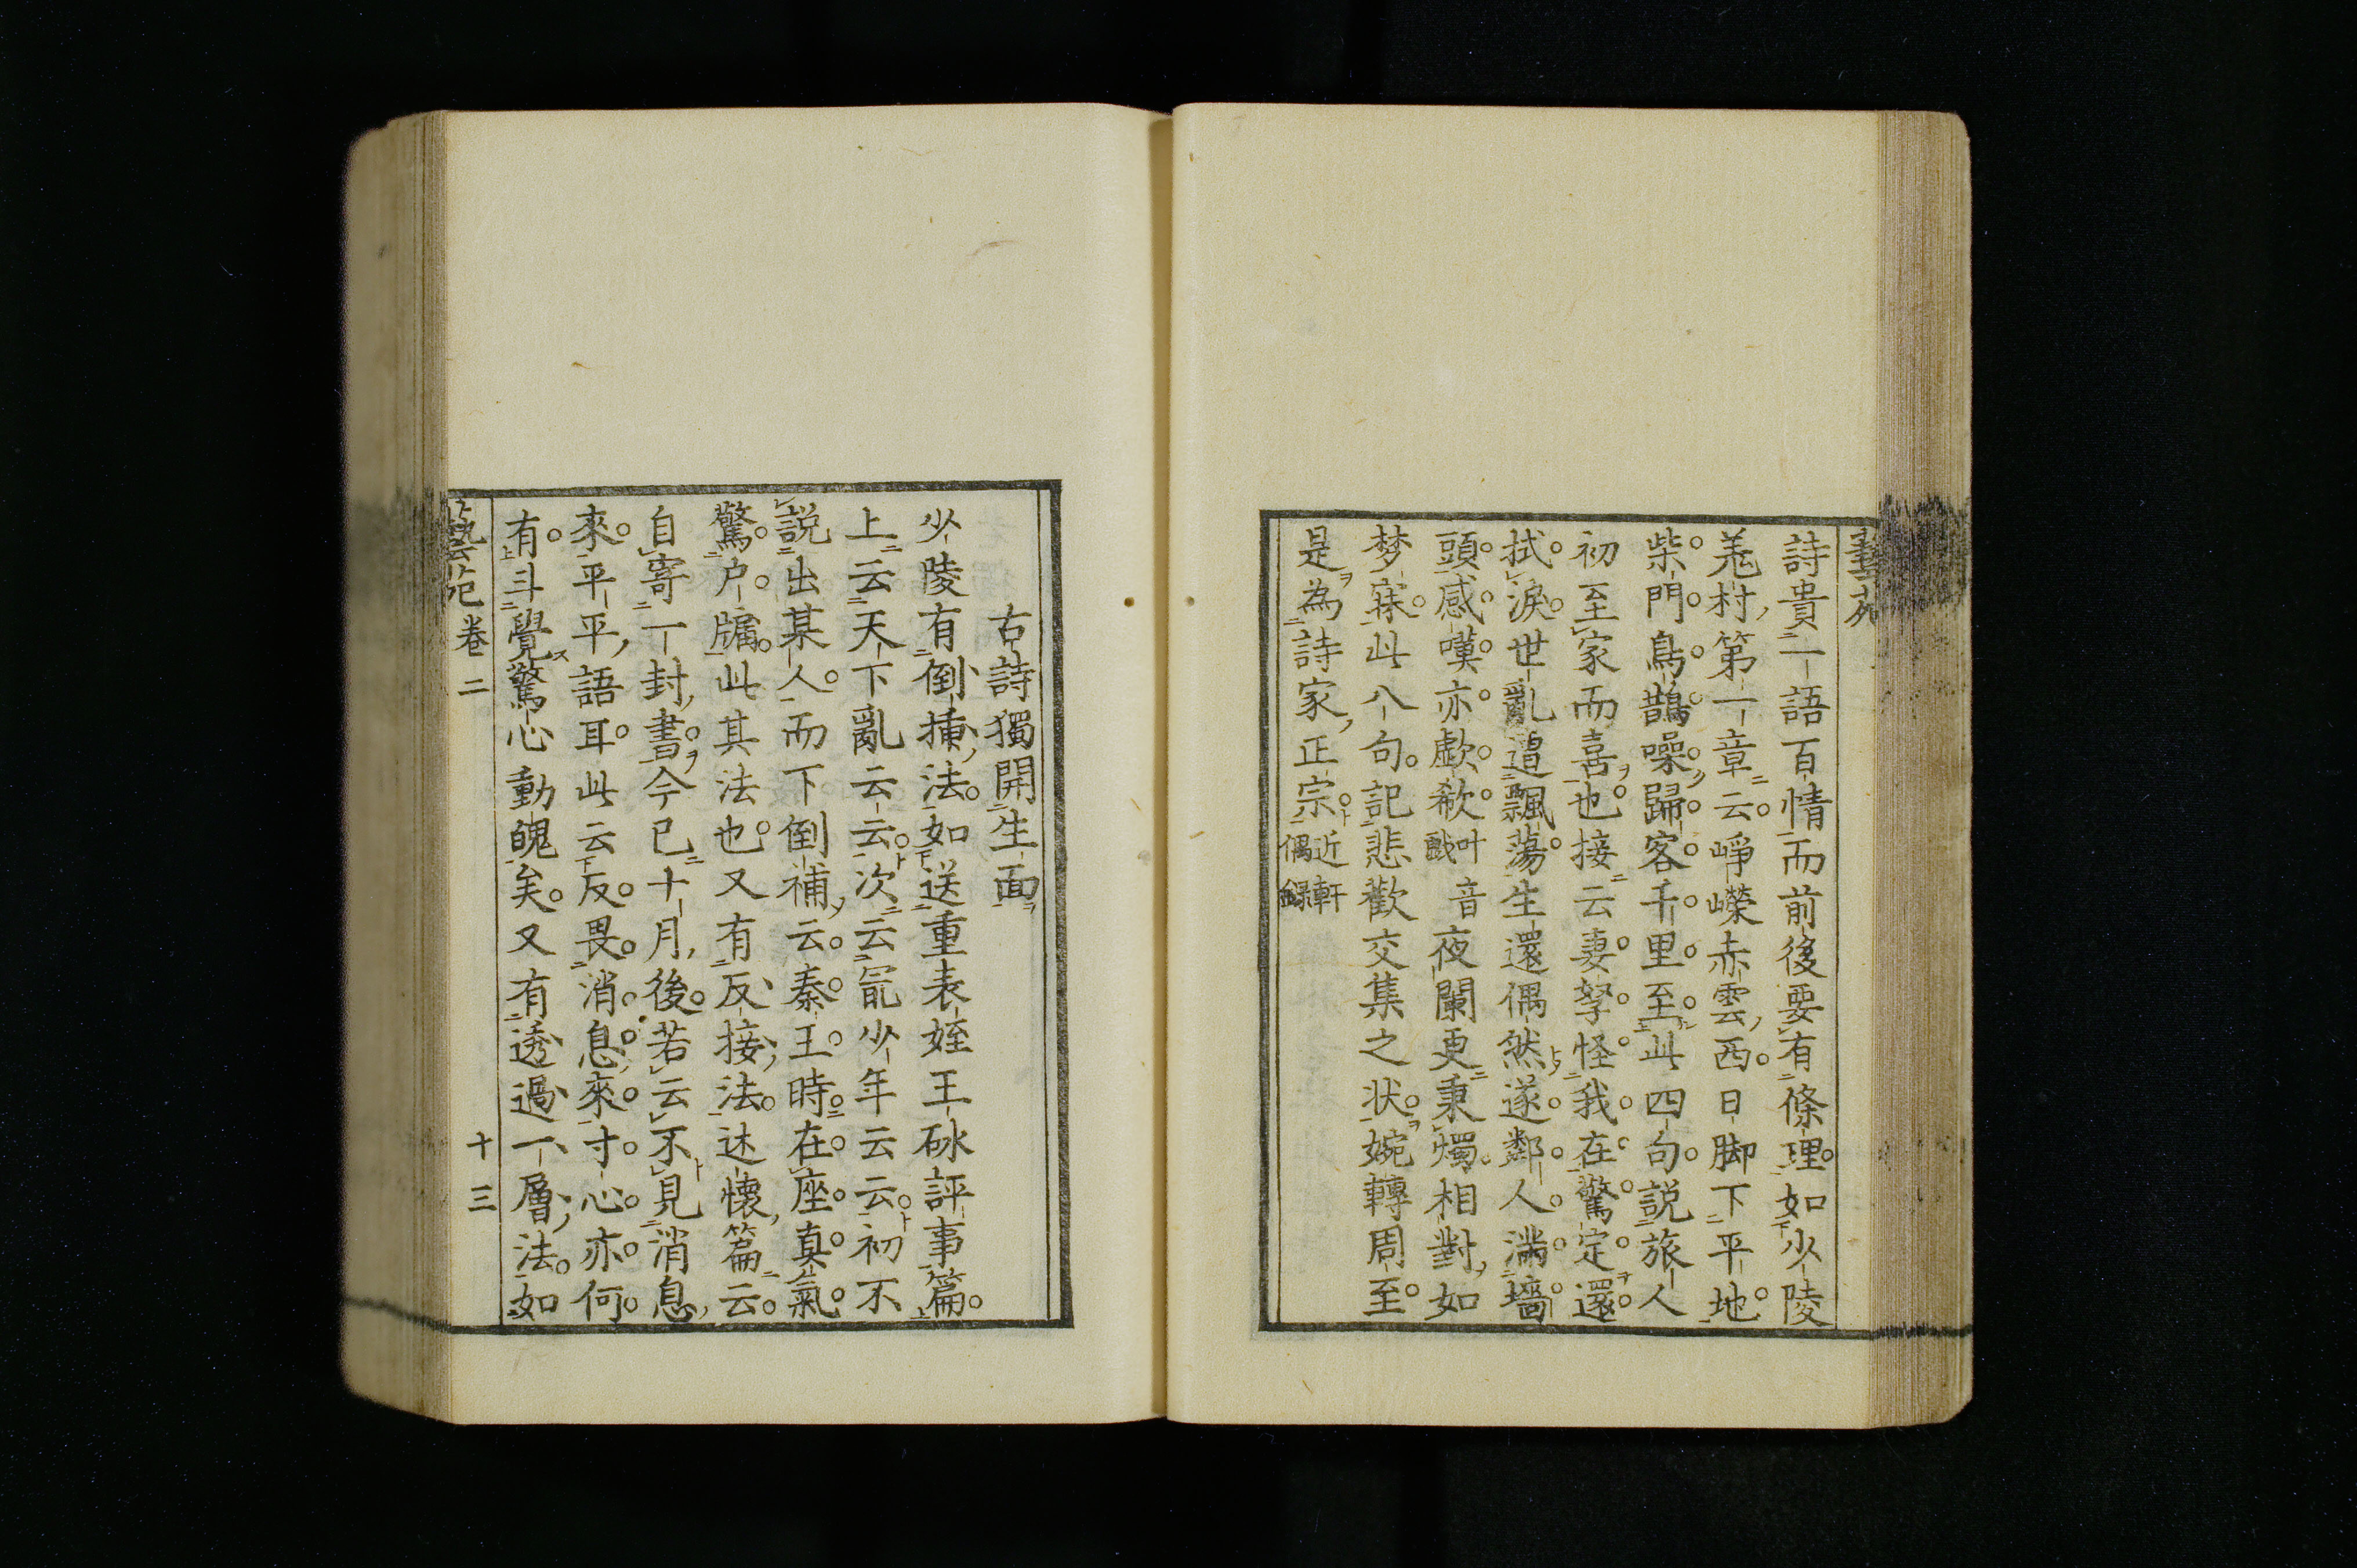 詩貴一語百情而前後要有條理如少陵
羌村第一章云崢嶸赤雲西日脚下平地
柴門鳥鵲噪歸客千里至此四句説旅人
初至家而喜也接云妻孥怪我在驚定還
拭淚世亂遭飄蕩生還偶然遂鄰人滿墻
頭感嘆亦歔欷叶音戲夜闌更秉燭相對如
梦寐此八句記悲歡交集之状婉轉周至
是為詩家正宗近軒偶錄
古詩獨開生面
少陵有倒揷法如送重表姪王砅評事篇
上云天下亂云云次云㝡少年云云初不
説出某人而下倒補云秦王時在座真氣
驚户牖此其法也又有反接法述懷篇云
自寄一封書今已十月後若云不見消息
來平平語耳此云反畏消息來寸心亦何
有斗覺驚心動魄矣又有透過一層法如
藝苑卷二 十三